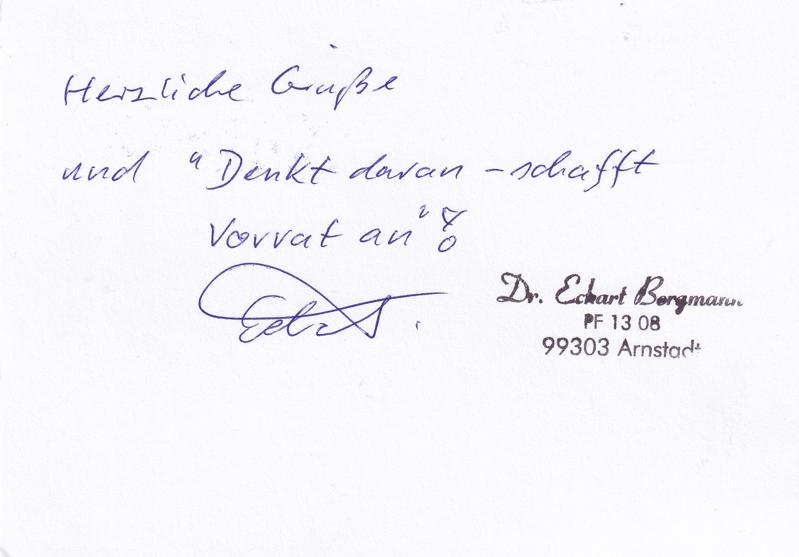 Herzliche Grüße
und "Denkt daran - schafft
Vorrat an"!
Eckart.
Dr. Eckart Bergmann
PF 13 08
99303 Arnstadt